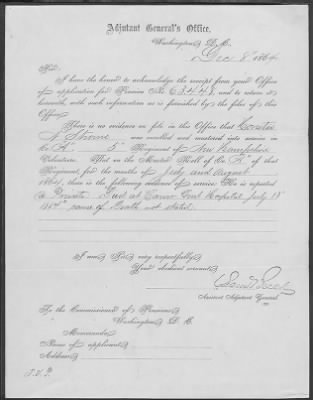 Adjutant General's Office,
Washington, D. C.
Dec 8" 1864
Sir:
I have the honor to acknowledge the receipt from your Office
of application for Pension No. 63448, and to return it
herewith, with such information as is furnished by the files of this
Office.
There is no evidence on file in this Office that
was enrolled and mustered into service in
Co. "A" 5" Regiment of New Hampshire
Volunteers. But on the Muster Roll of Co. "A" of that
Regiment, for the months of July and August
1864, there is the following evidence of service: He is reported
a Private Died at Corner Hospital July 15"
cause of Death not stated.
I am Sir, very respectfully,
Your obedient servant,
Assistant Adjutant General.
To the Commissioner of Pensions,
Washington, D. C.
Memoranda:
Name of applicant,
Address,